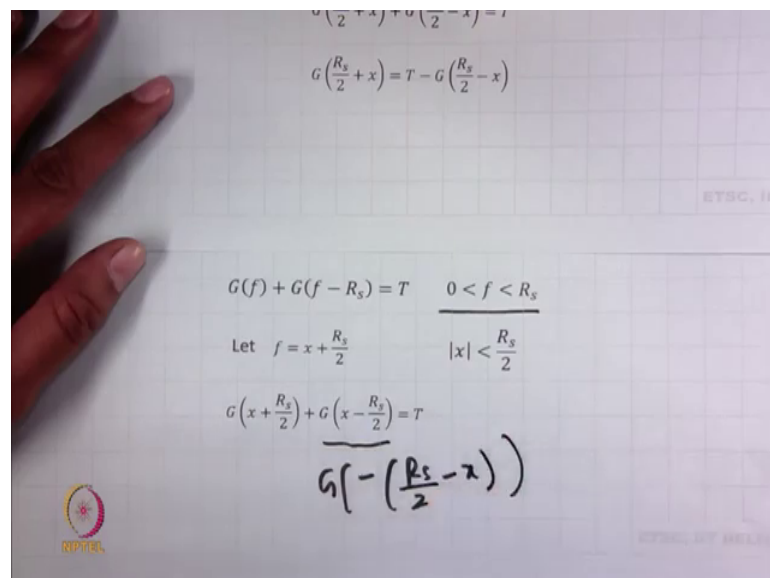 G(Rs/2 + x) + G(Rs/2 − x) = T
G(Rs/2 + x) = T − G(Rs/2 − x)
ETSC, I
G(f) + G(f − Rs) = T 0 < f < Rs
Let f = x + Rs/2 |x| < Rs/2
G(x + Rs/2) + G(x − Rs/2) = T
G(−(Rs/2 − x))
NPTEL
ETSC, IIT DELHI